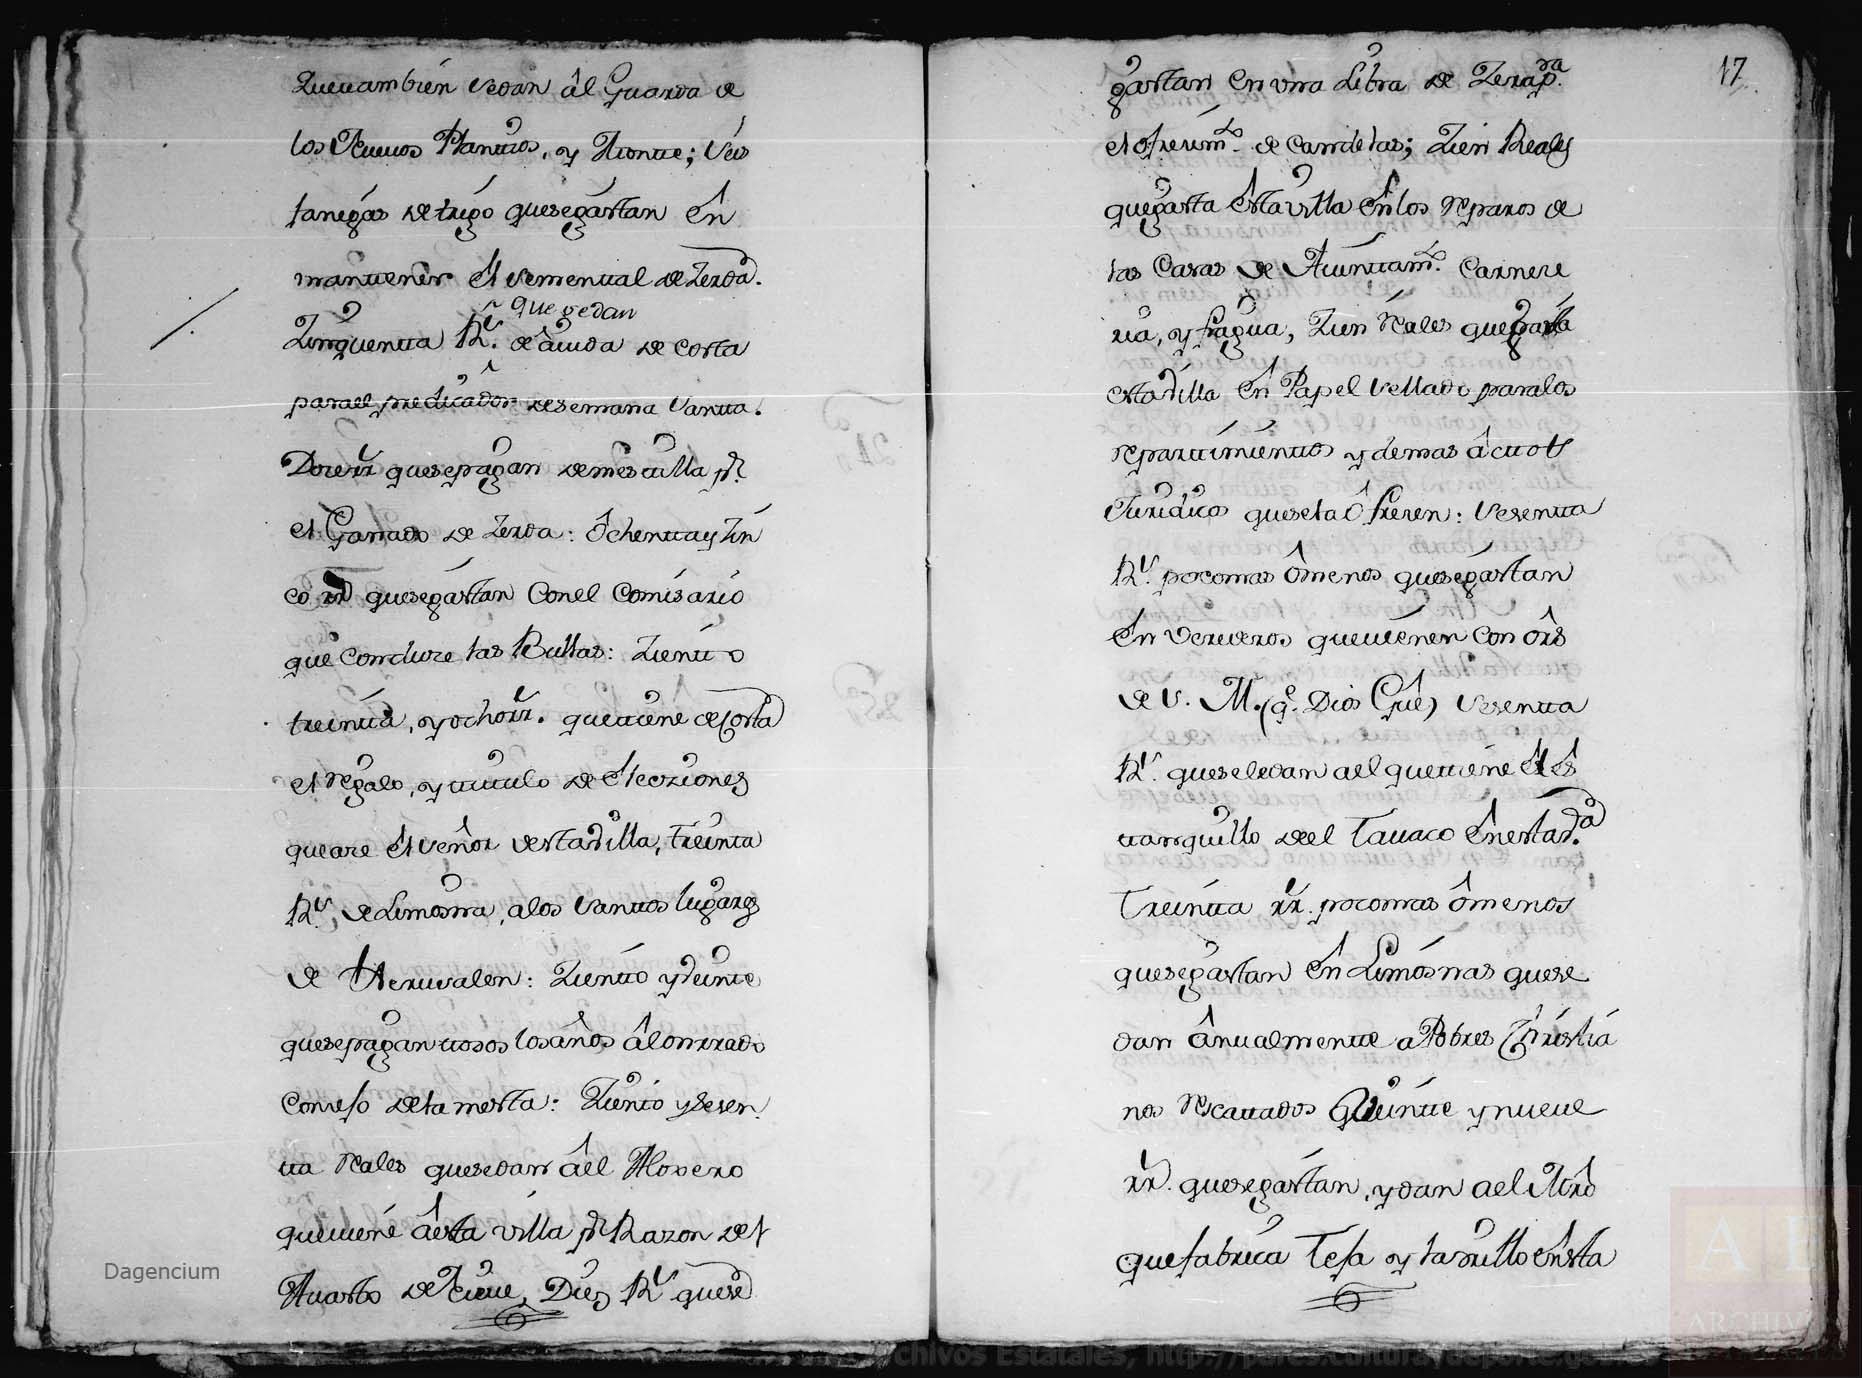 Quetambien sedan âl Guarda de
los Nuevos Plantios, y Monte; seis
fanegas de trigo quesegastan ên
mantener êl semental de Zerda.
que sedan
Zinquenta Rs. de âiuda de costa
parael predicador desemana santa.
Doze rrs quesepagan demescilla pr.
el Ganado de Zerda: ôchenta y Zin
co rrs quesegastan Conel Comisario
que Conduze las Bullas: Ziento
treinta, y ocho rrs. quetiene de Costa
el regalo, y titulo de Elecziones
queaze êl señor destavilla, treinta
Rs. de Limosna, alos santos lugares
de Jerusalen: Ziento y veinte
quesepagan todos losâños âl onrrado
Consejo dela mesta: Ziento y sesen
ta reales quesedan âel Alojero
quetiene âesta villa pr Razon del
quarto de Nieve, Diez Rs quese
Dagencium
17
gastan en una Libra de Zera pra.
el ofrezimto. de Candelas; Zien Reales
quegasta êstavilla ên los reparos de
las Casas de Aiuntamto. Carnize
ria, y fragua, Zien reales quegasta
estavilla ên Papel sellado paralos
repartimientos y demas âctos
Juridicos quesela ôfrezen: sesenta
Rs. pocomas ômenos quesegastan
ên Verederos quevienen con ôrs
de S. M. (q. Dios Gûe) sesenta
Rs. queseledan ael quetiene êl es
tanquillo deel Tavaco ênestava.
Treinta rrs. pocomas ômenos
quesegastan ên Limosnas quese
dan ânualmente a Pobres Christia
nos rescatados Veinte y nueve
rrs. quesegastan, y dan ael Mrô
quefabrica Teja y ladrillo ênesta